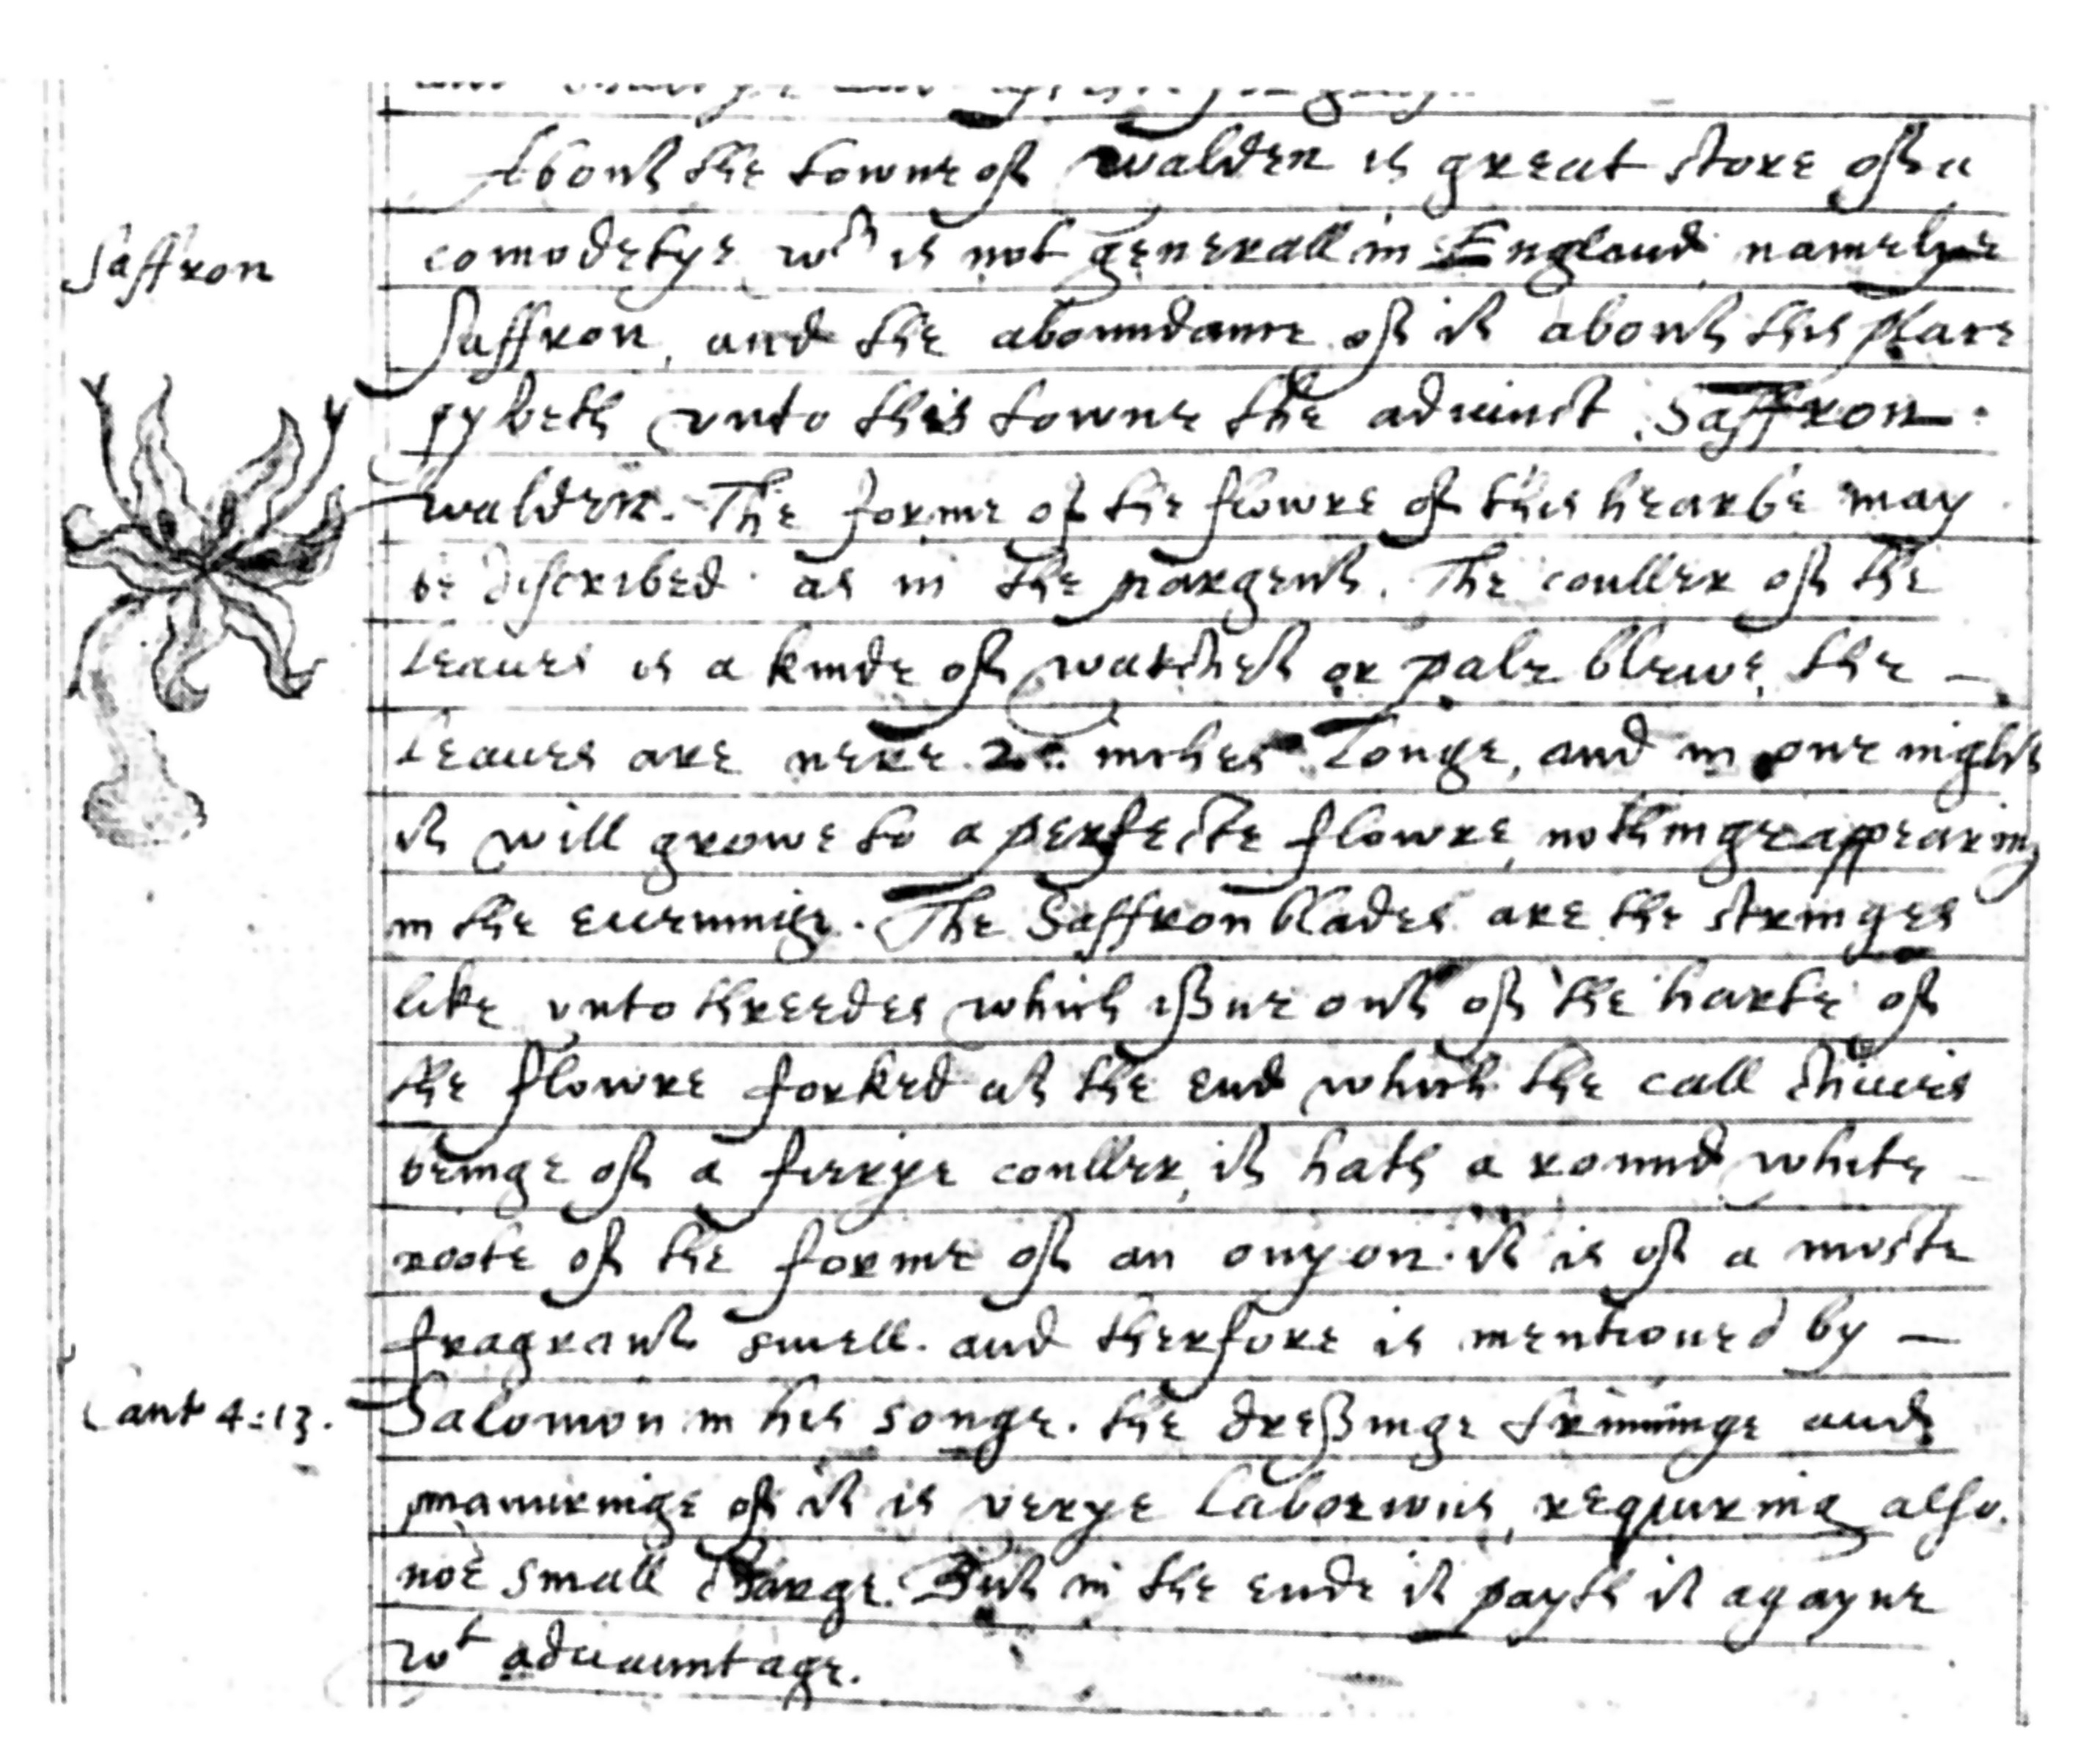 Saffron
About the towne of walden is great store of a
comodetye wch is not generall in England, namelye
Saffron, and the aboundance of it about this place
gyveth vnto this towne the adiunct Saffron
walden. The forme of the flowre of this hearbe may
be discribed as in the margent. The couller of the
leaues is a kinde of watchet or pale blewe, the –
leaues are nere 2 inches longe, and in one night
it will growe to a perfecte flowre, nothinge appearing
in the eueninge. The Saffron blades are the stringes
like vnto threedes which issue out of the harte of
the flowre forked at the end which the call chiues
beinge of a fierye couller, it hath a round white
roote of the forme of an onyon. it is of a moste
fragrant smell. and therfore is mentioned by –
Cant 4:13.
Salomon in his songe. the dressinge triminge and
manuringe of it is verye laborious, requiring also.
noe small charge. But in the ende it payth it agayne
wt aduauntage.